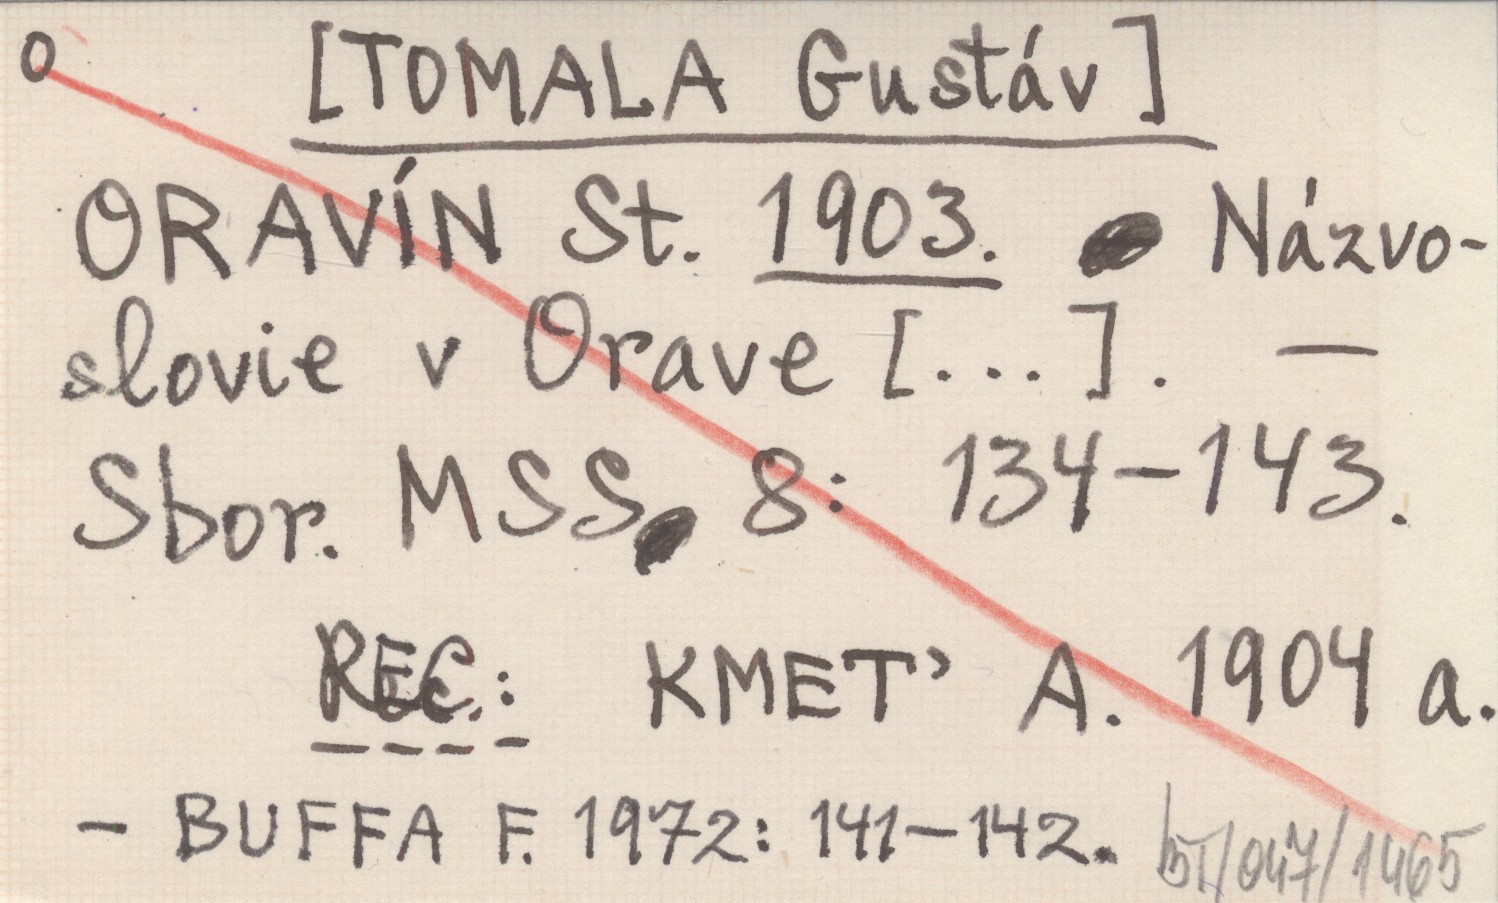 o [TOMALA Gustáv]
ORAVÍN St. 1903. Názvo-
slovie v Orave [...]. —
Sbor. MSS 8: 134–143.
REC.: KMEŤ A. 1904 a.
– BUFFA F. 1972: 141–142.
/047/1465